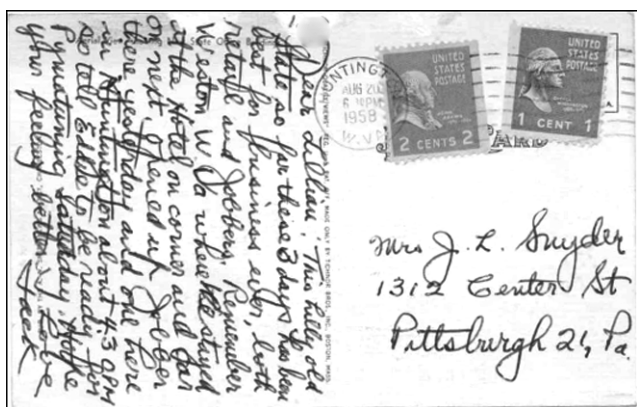 Dear Lillian: This hilly old
State so far these 3 days has been
best for business ever, both
retail and Jobbers. Remember
Weston W. Va where we stayed
at the Hotel on corner and Car
on next. Opened up Jobber
there yesterday and one here
in Huntington about 4:30 PM
so tell Eddie to be ready for
Pymatuning Saturday. Hope
your feeling better. Love
Jack
HUNTINGTON
AUG 20
6 PM
1958
W.VA
UNITED
STATES
POSTAGE
2 CENTS 2
UNITED
STATES
POSTAGE
1 CENT 1
Mrs J. L. Snyder
1312 Center St
Pittsburgh 21, Pa.